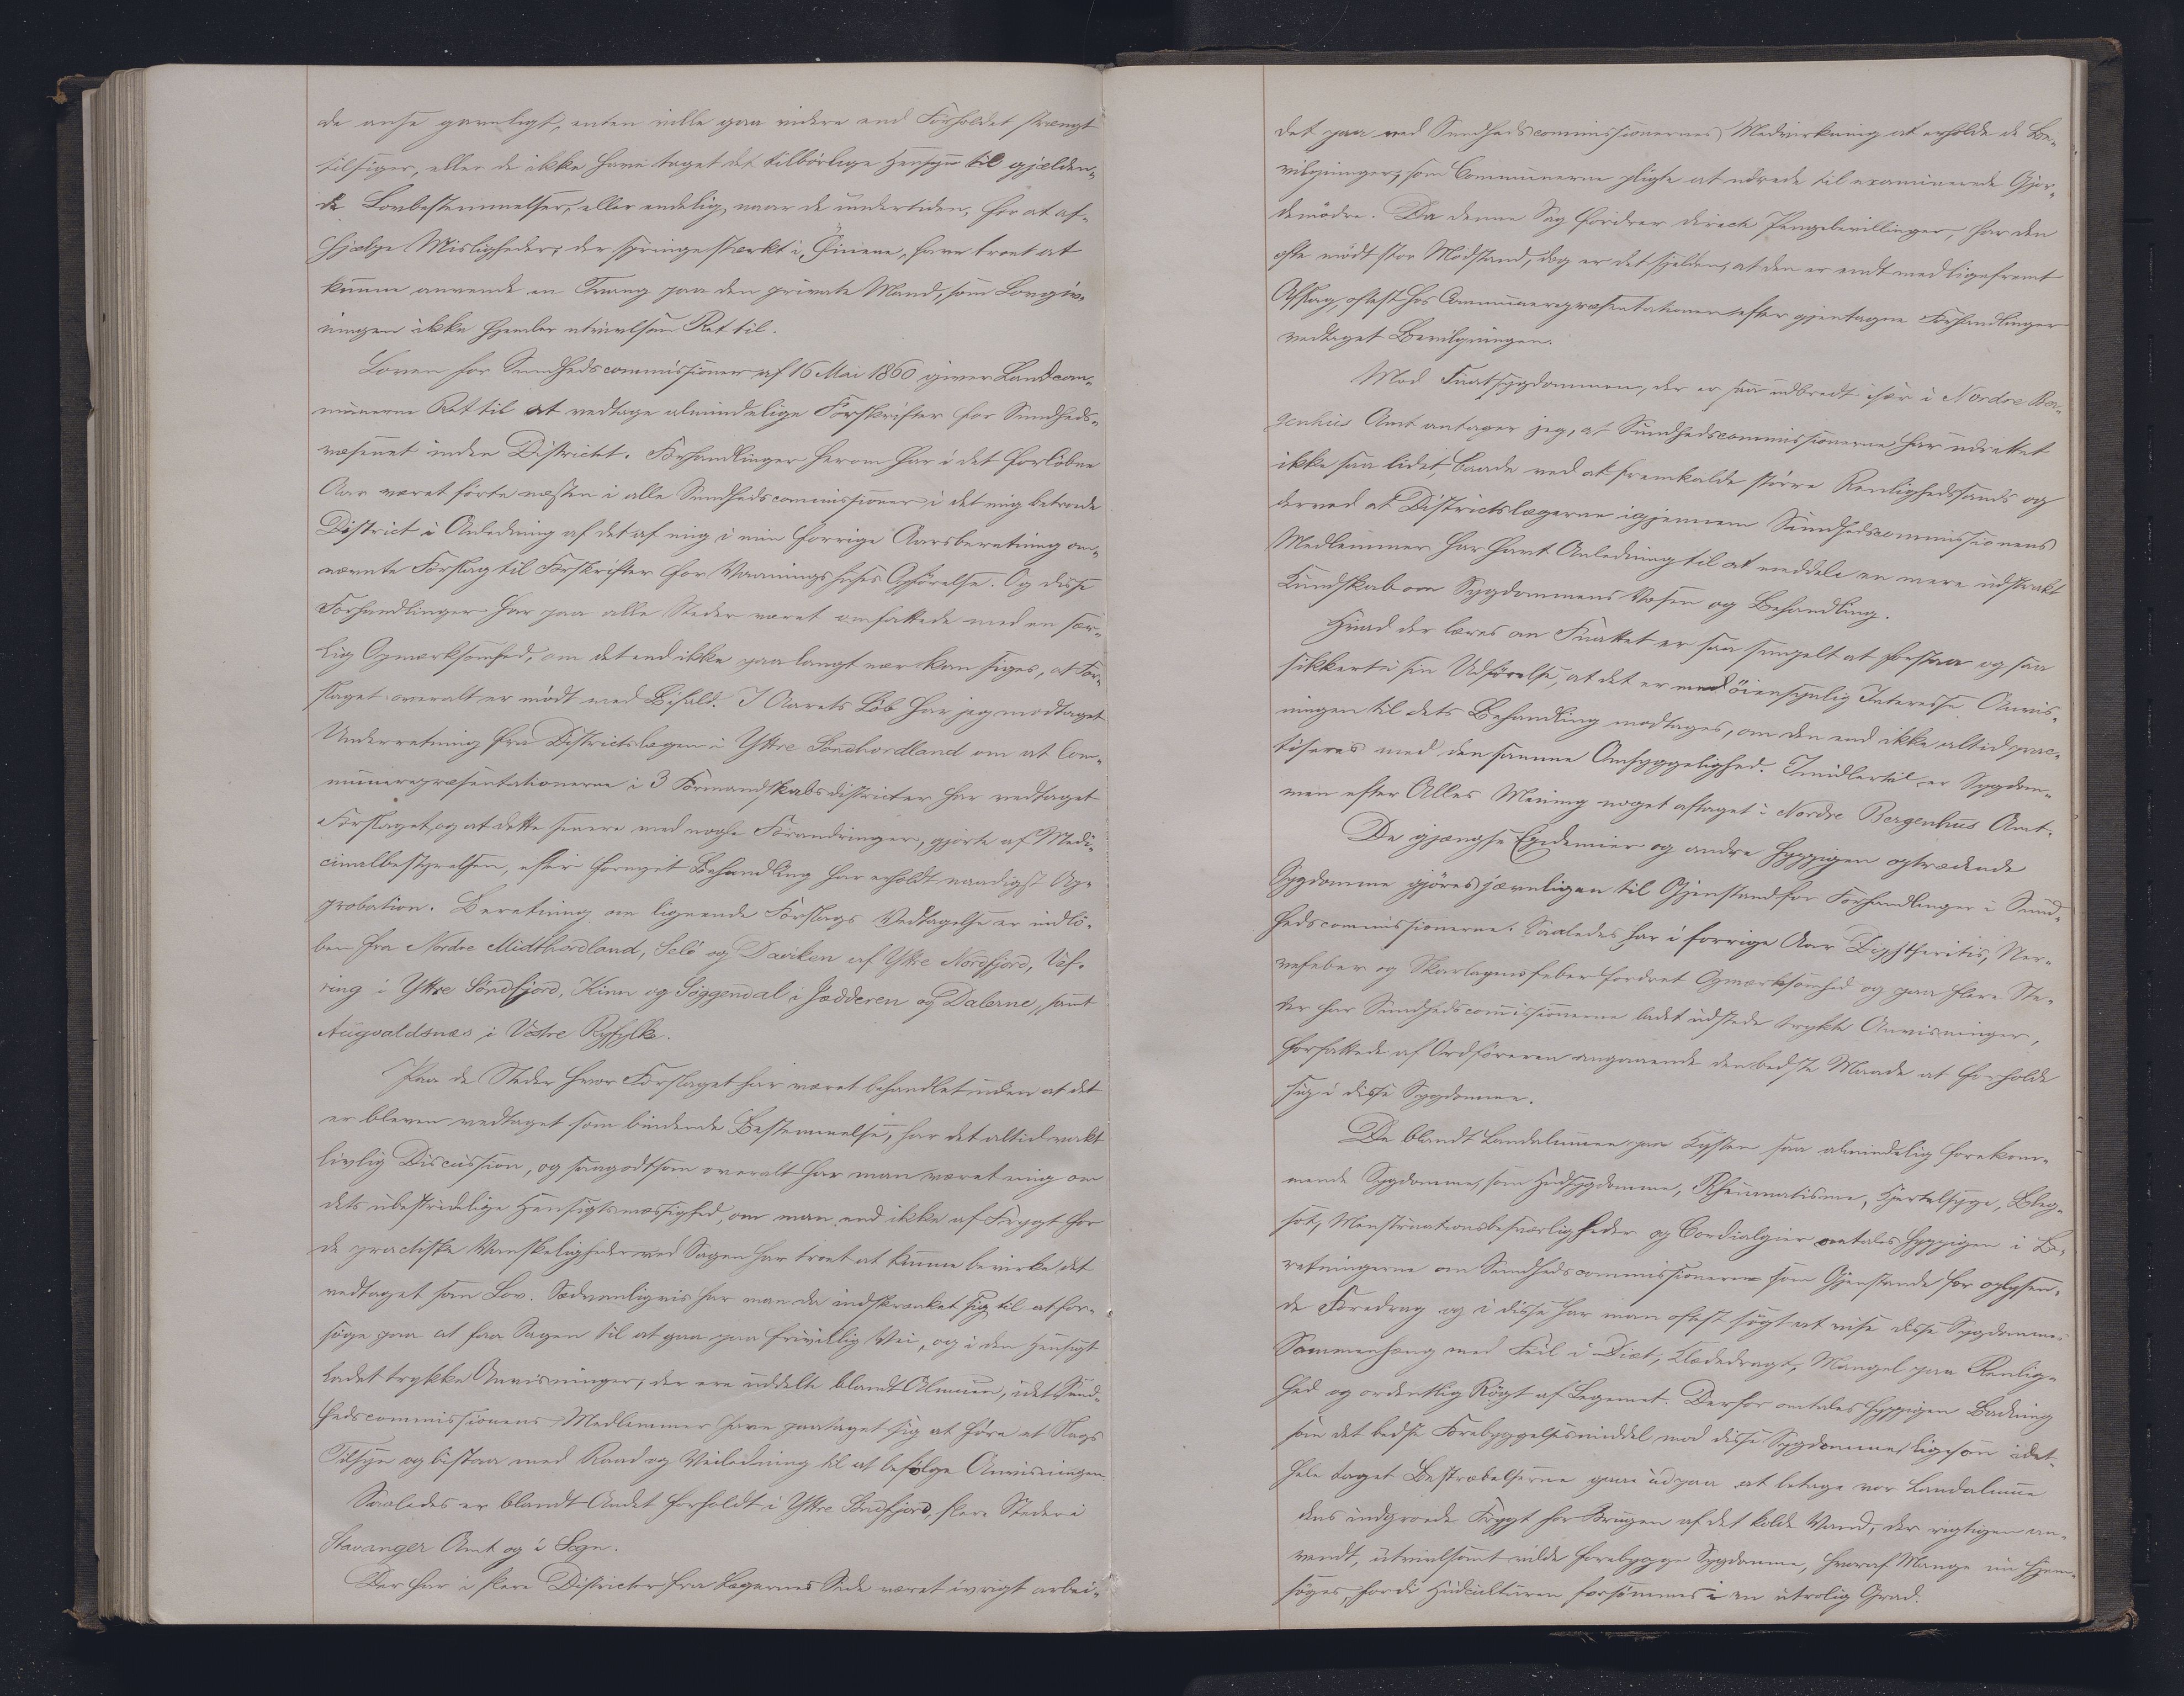 de anse gavnligt, enten ville gaa videre end Forholdet strængt
tilsiger, eller de ikke have taget det tilbörlige Hensyn til gjælden-
de Lovbestemmelser, eller endelig, naar de undertiden, for at af-
hjælpe Misligheder, der springe stærkt i Öinene, have troet at
kunne anvende en Tvang paa den private Mand, som Lovgiv-
ningen ikke hjemler utvivlsom Ret til.
Loven for Sundhedscommissioner af 16 Mai 1860 giver Landcom-
munerne Ret til at vedtage almindelige Forskrifter for Sundheds-
væsenet inden Districtet. Forhandlinger herom har i det forlöbne
Aar været förte næsten i alle Sundhedscommissioner i det mig betroede
District i Anledning af det af mig i min forrige Aarsberetning om-
nævnte Forslag til Forskrifter for Vaaningshuses Opförelse. Og disse
Forhandlinger har paa alle Steder været omfattede med en sær-
lig Opmærksomhed, om det end ikke paa langt nær kan siges, at For-
slaget overalt er mödt med Bifald. I Aarets Löb har jeg modtaget
Underretning fra Districtslægen i Yttre Söndhordland om at Com-
munerepræsentationerne i 3 Formandskabsdistricter har vedtaget
Forslaget, og at dette senere med nogle Forandringer, gjorte af Medi-
cinalbestyrelsen, efter fornyet Behandling har erholdt naadigst Ap-
probation. Beretning om lignende Forslags Vedtagelse er indlö-
ben fra Nordre Midthordland, Selö og Daviken af Yttre Nordfjord, Vef-
ring i Yttre Söndfjord, Kinn og Söggendal i Jædderen og Dalerne, samt
Augvaldsnæs i Vestre Ryfylke.
Paa de Steder hvor Forslaget har været behandlet uden at det
er bleven vedtaget som bindende Bestemmelse, har det altid vakt
livlig Discussion, og saagodtsom overalt har man været enig om
dets ubestridelige Hensigtsmæssighed, om man end ikke af Frygt for
de practiske Vanskeligheder ved Sagen har troet at kunne bevirke det
vedtaget som Lov. Sædvanligvis har man da indskrænket sig til at for-
söge paa at faa Sagen til at gaa paa frivillig Vei, og i den Hensigt
ladet trykke Anvisninger, der ere uddelte blandt Almuen, idet Sund-
hedscommissionens Medlemmer have paataget sig at före et Slags
Tilsyn og bistaa med Raad og Veiledning til at befölge Anvisningen.
Saaledes er blandt Andet forholdt i Yttre Söndfjord, flere Steder i
Stavanger Amt og i Sogn.
Der har i flere Districter fra Lægernes Side været ivrigt arbei-
det paa ved Sundhedscommissionernes Medvirkning at erholde de Be-
vilgninger, som Communerne pligte at udrede til examinerede Gjor-
demödre. Da denne Sag fordrer directe Pengebevillinger, har den
ofte mödt stor Modstand, dog er det sjelden, at den er endt med ligefremt
Afslag, oftest har Communerepræsentationen efter gjentagne Forhandlinger
vedtaget Bevilgningen.
Mod Fnatsygdommen, der er saa udbredt især i Nordre Ber-
genhus Amt antager jeg, at Sundhedscommissionerne har udrettet
ikke saa lidet, baade ved at fremkalde större Renlighedssands og
derved at Districtslægerne igjennem Sundhedscommissionens
Medlemmer har havt Anledning til at meddele en mere udstrakt
Kundskab om Sygdommens Væsen og Behandling.
Hvad der læres om Fnattet er saa simpelt at forstaa og saa
sikkert i sin Udförelse, at det er med öiensynlig Interesse Anvis-
ningen til dets Behandling modtages, om den end ikke altid prac-
tiseres med den samme Omhyggelighed. Imidlertid er Sygdom-
men efter Alles Mening noget aftaget i Nordre Bergenhus Amt.
De gjængse Epidemier og andre hyppigen optrædende
Sygdomme gjöres jævnligen til Gjenstand for Forhandlinger i Sund-
hedscommissionerne. Saaledes har i forrige Aar Diphtheritis, Ner-
vefeber og Skarlagensfeber fordret Opmærksomhed og paa flere Ste-
der har Sundhedscommissionerne ladet udstede trykte Anvisninger,
forfattede af Ordföreren angaaende den bedste Maade at forholde
sig i disse Sygdomme.
De blandt Landalmuen paa Kysten saa almindelig forekom-
mende Sygdomme, som Hudsygdomme, Rheumatisme, Kjertelsyge, Bleg-
sot, Menstruationsbesværligheder og Cardialgier omtales hyppigen i Be-
retningerne om Sundhedscommissionerne som Gjenstande for oplysen-
de Foredrag og i disse har man oftest sögt at vise disse Sygdommes
Sammenhæng med Feil i Diæt, Klædedragt, Mangel paa Renlig-
hed og ordentlig Rögt af Legemet. Derfor omtales hyppigen Badning
som det bedste Forebyggelsesmiddel mod disse Sygdomme, ligesom i det-
hele taget Bestræbelserne gaar ud paa at betage vor Landalmue
dens indgroede Frygt for Brugen af det kolde Vand, der rigtigen an-
vendt, utvivlsomt vilde forebygge Sygdomme, hvoraf Mange nu hjem-
söges, fordi Hudculturen forsömmes i en utrolig Grad.